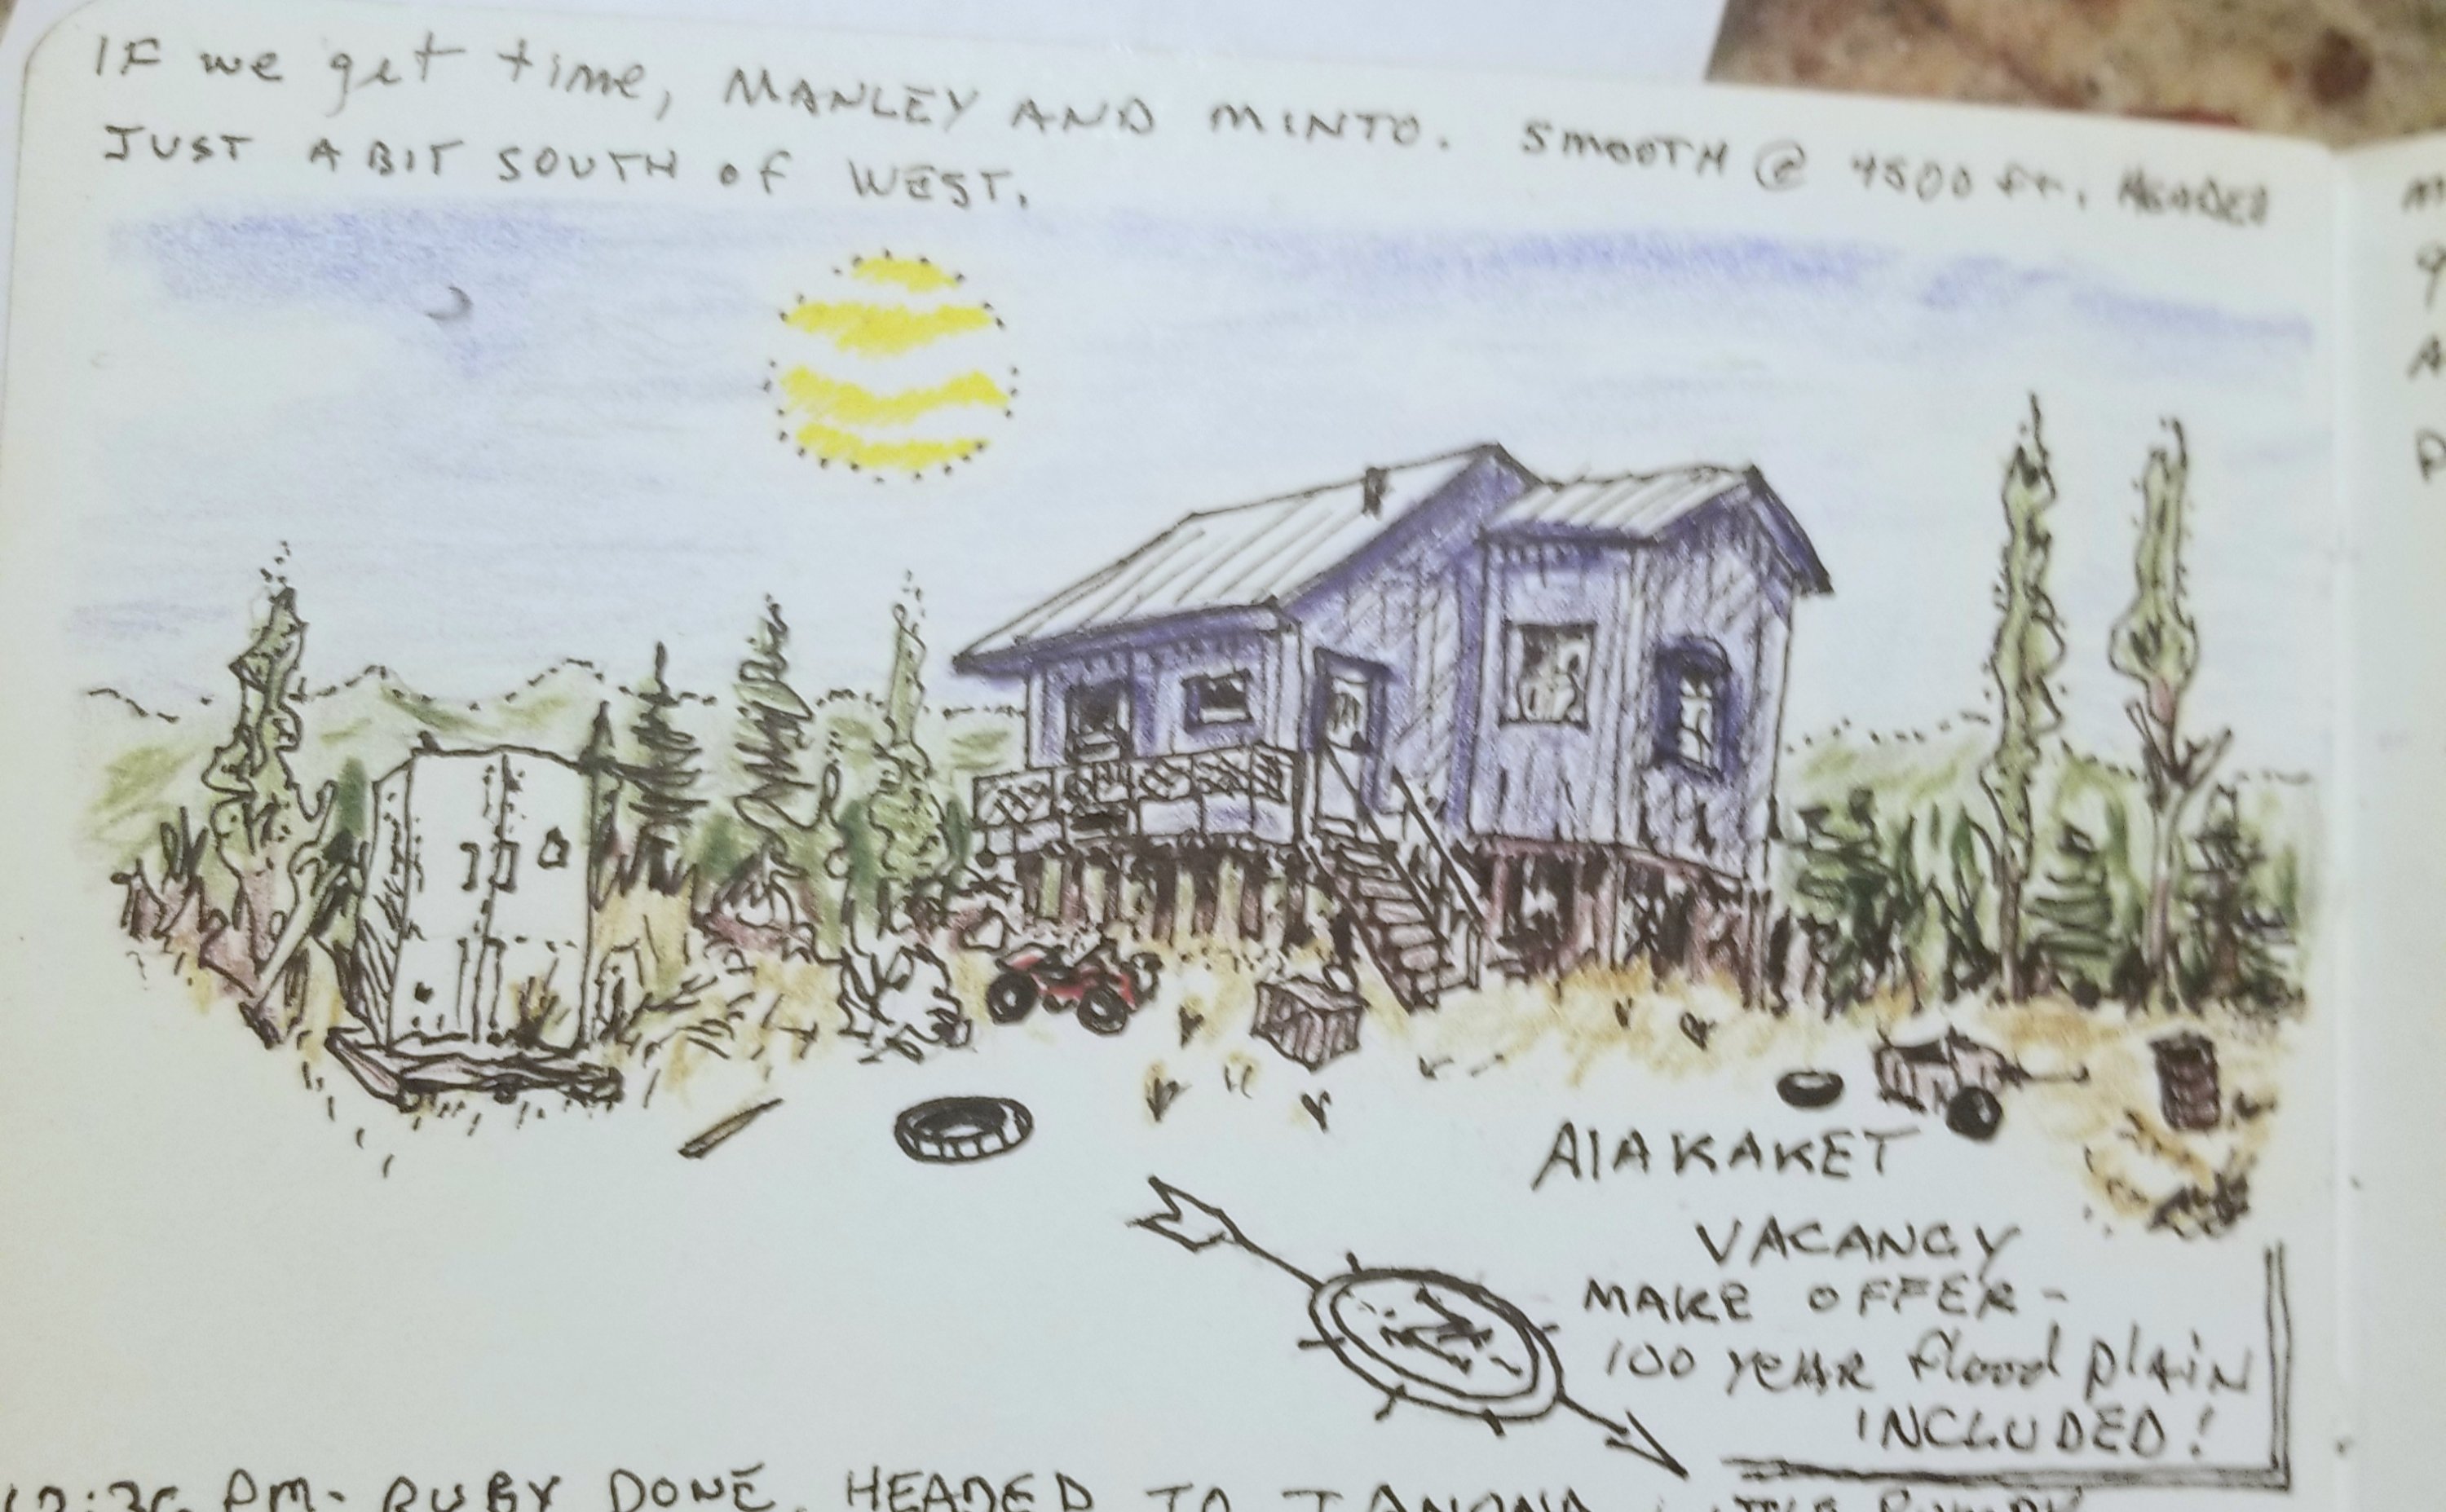 IF we get time, MANLEY AND MINTO. SMOOTH @ 4500 ft. HEADED
JUST A BIT SOUTH of WEST.
AlAKAKET
VACANCY
MAKE OFFER -
100 YEAR flood plAIN
INCLUDED!
PM- RUBY DONE. HEADED TO TANANA